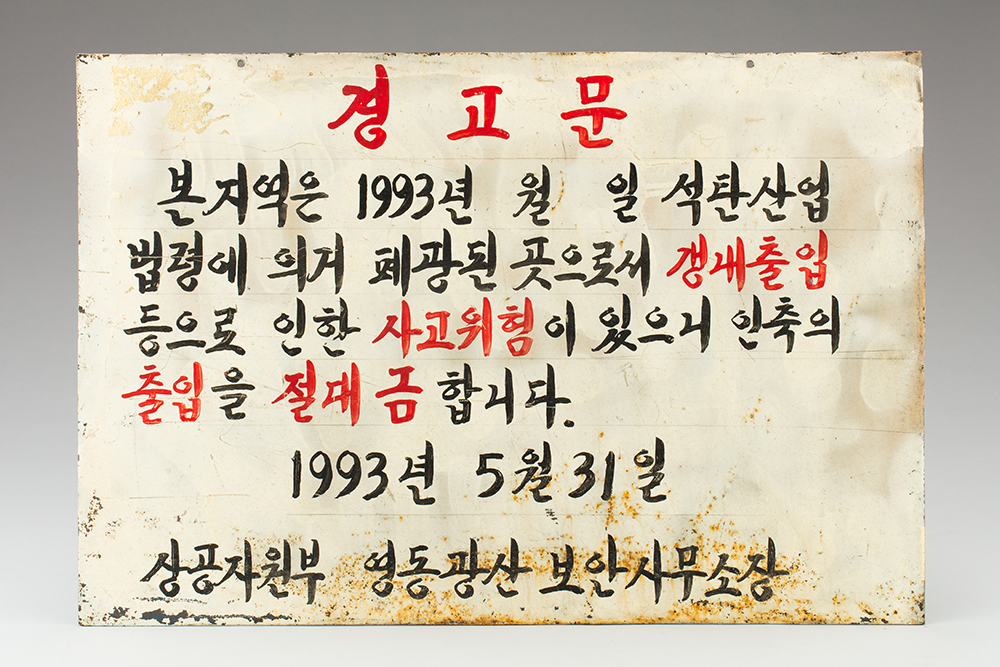 경고문
본지역은 1993년 월 일 석탄산업
법령에 의거 폐광된 곳으로서 갱내출입
등으로 인한 사고위험이 있으니 인축의
출입을 절대 금합니다.
1993년 5월 31일
상공자원부 영동광산 보안사무소장